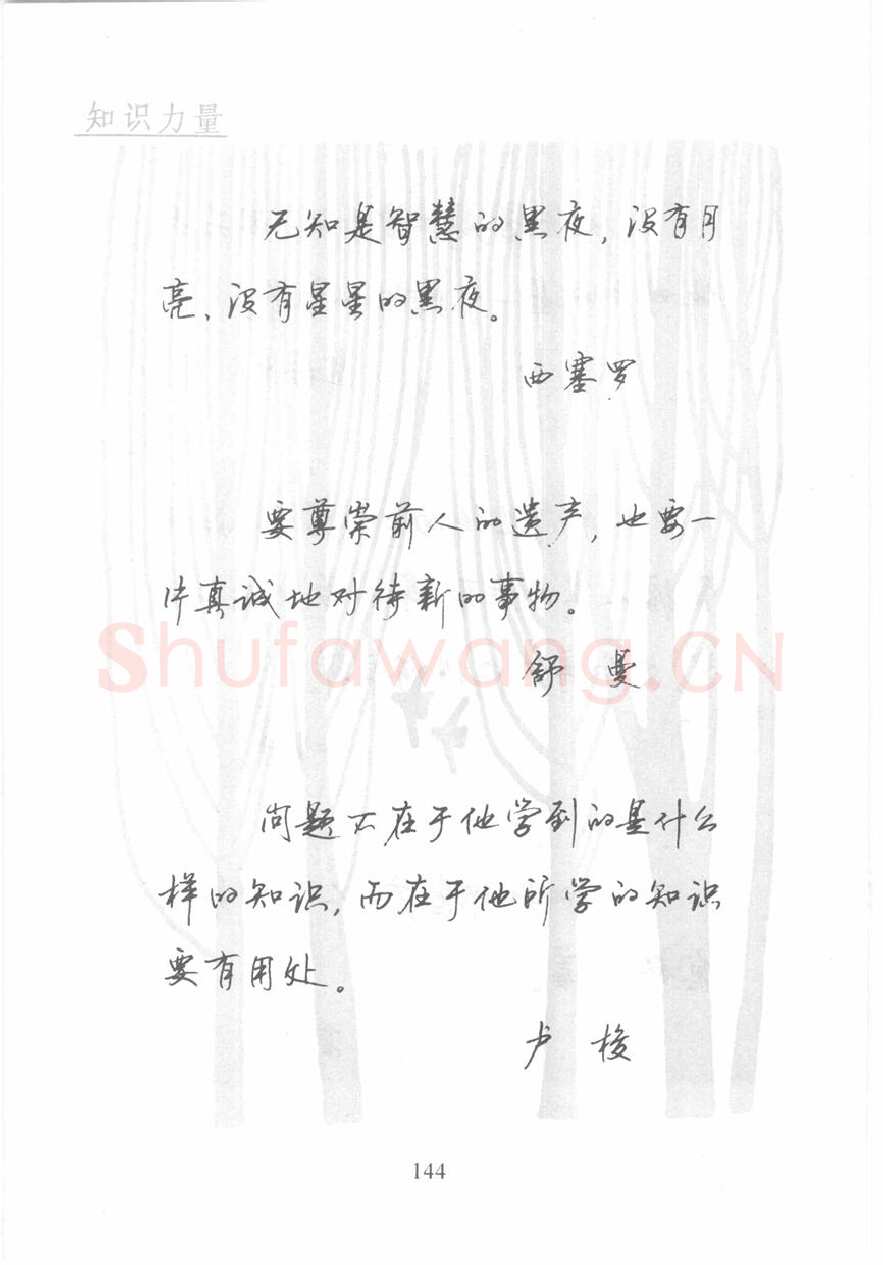 知识力量
无知是智慧的黑夜，没有月
亮、没有星星的黑夜。
西塞罗
要尊崇前人的遗产，也要一
片真诚地对待新的事物。
舒曼
Shufawang.CN
问题不在于他学到的是什么
样的知识，而在于他所学的知识
要有用处。
卢梭
144